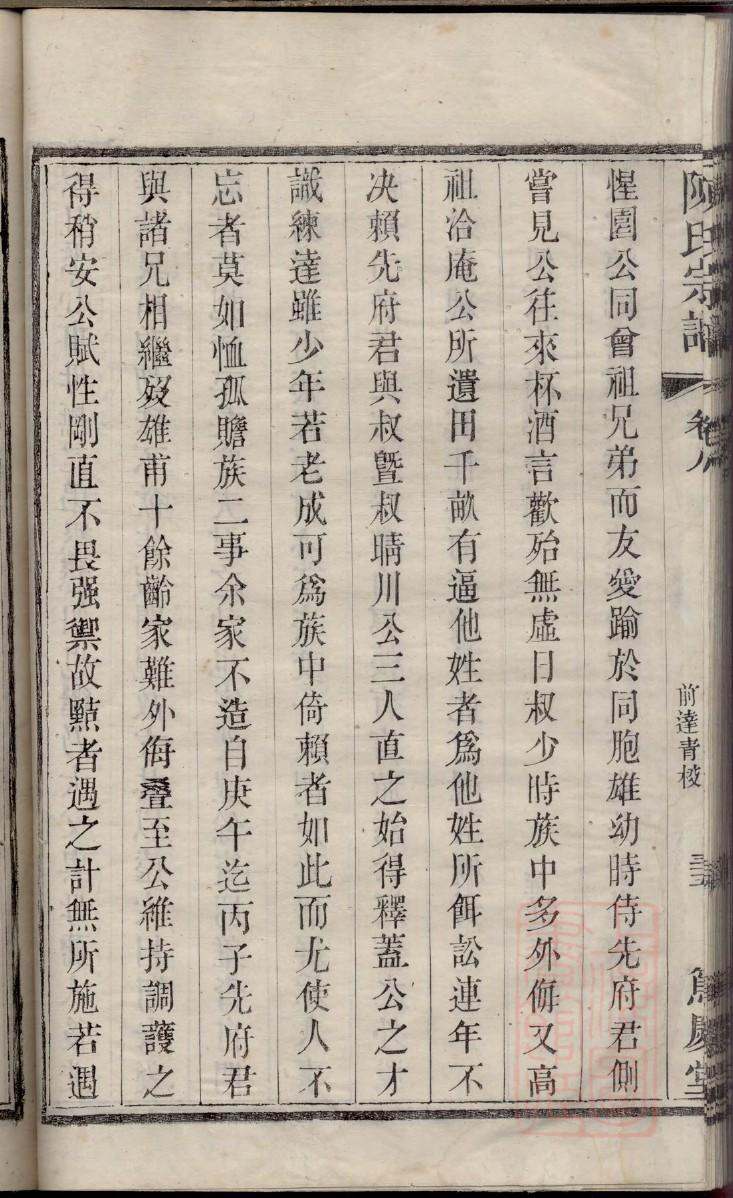 惺園公同曾祖兄弟而友愛踰於同胞雄幼時侍先府君側
嘗見公往來杯酒言歡殆無虛日叔少時族中多外侮又高
祖洽庵公所遺田千畝有逼他姓者爲他姓所餌訟連年不
决賴先府君與叔曁叔晴川公三人直之始得釋蓋公之才
識練達雖少年若老成可爲族中倚賴者如此而尤使人不
忘者莫如恤孤贍族二事余家不造自庚午迄丙子先府君
與諸兄相繼歿雄甫十餘齡家難外侮疊至公維持調護之
得稍安公賦性剛直不畏强禦故黠者遇之計無所施若遇
陳氏宗譜
卷八
前達青枝
篤慶堂